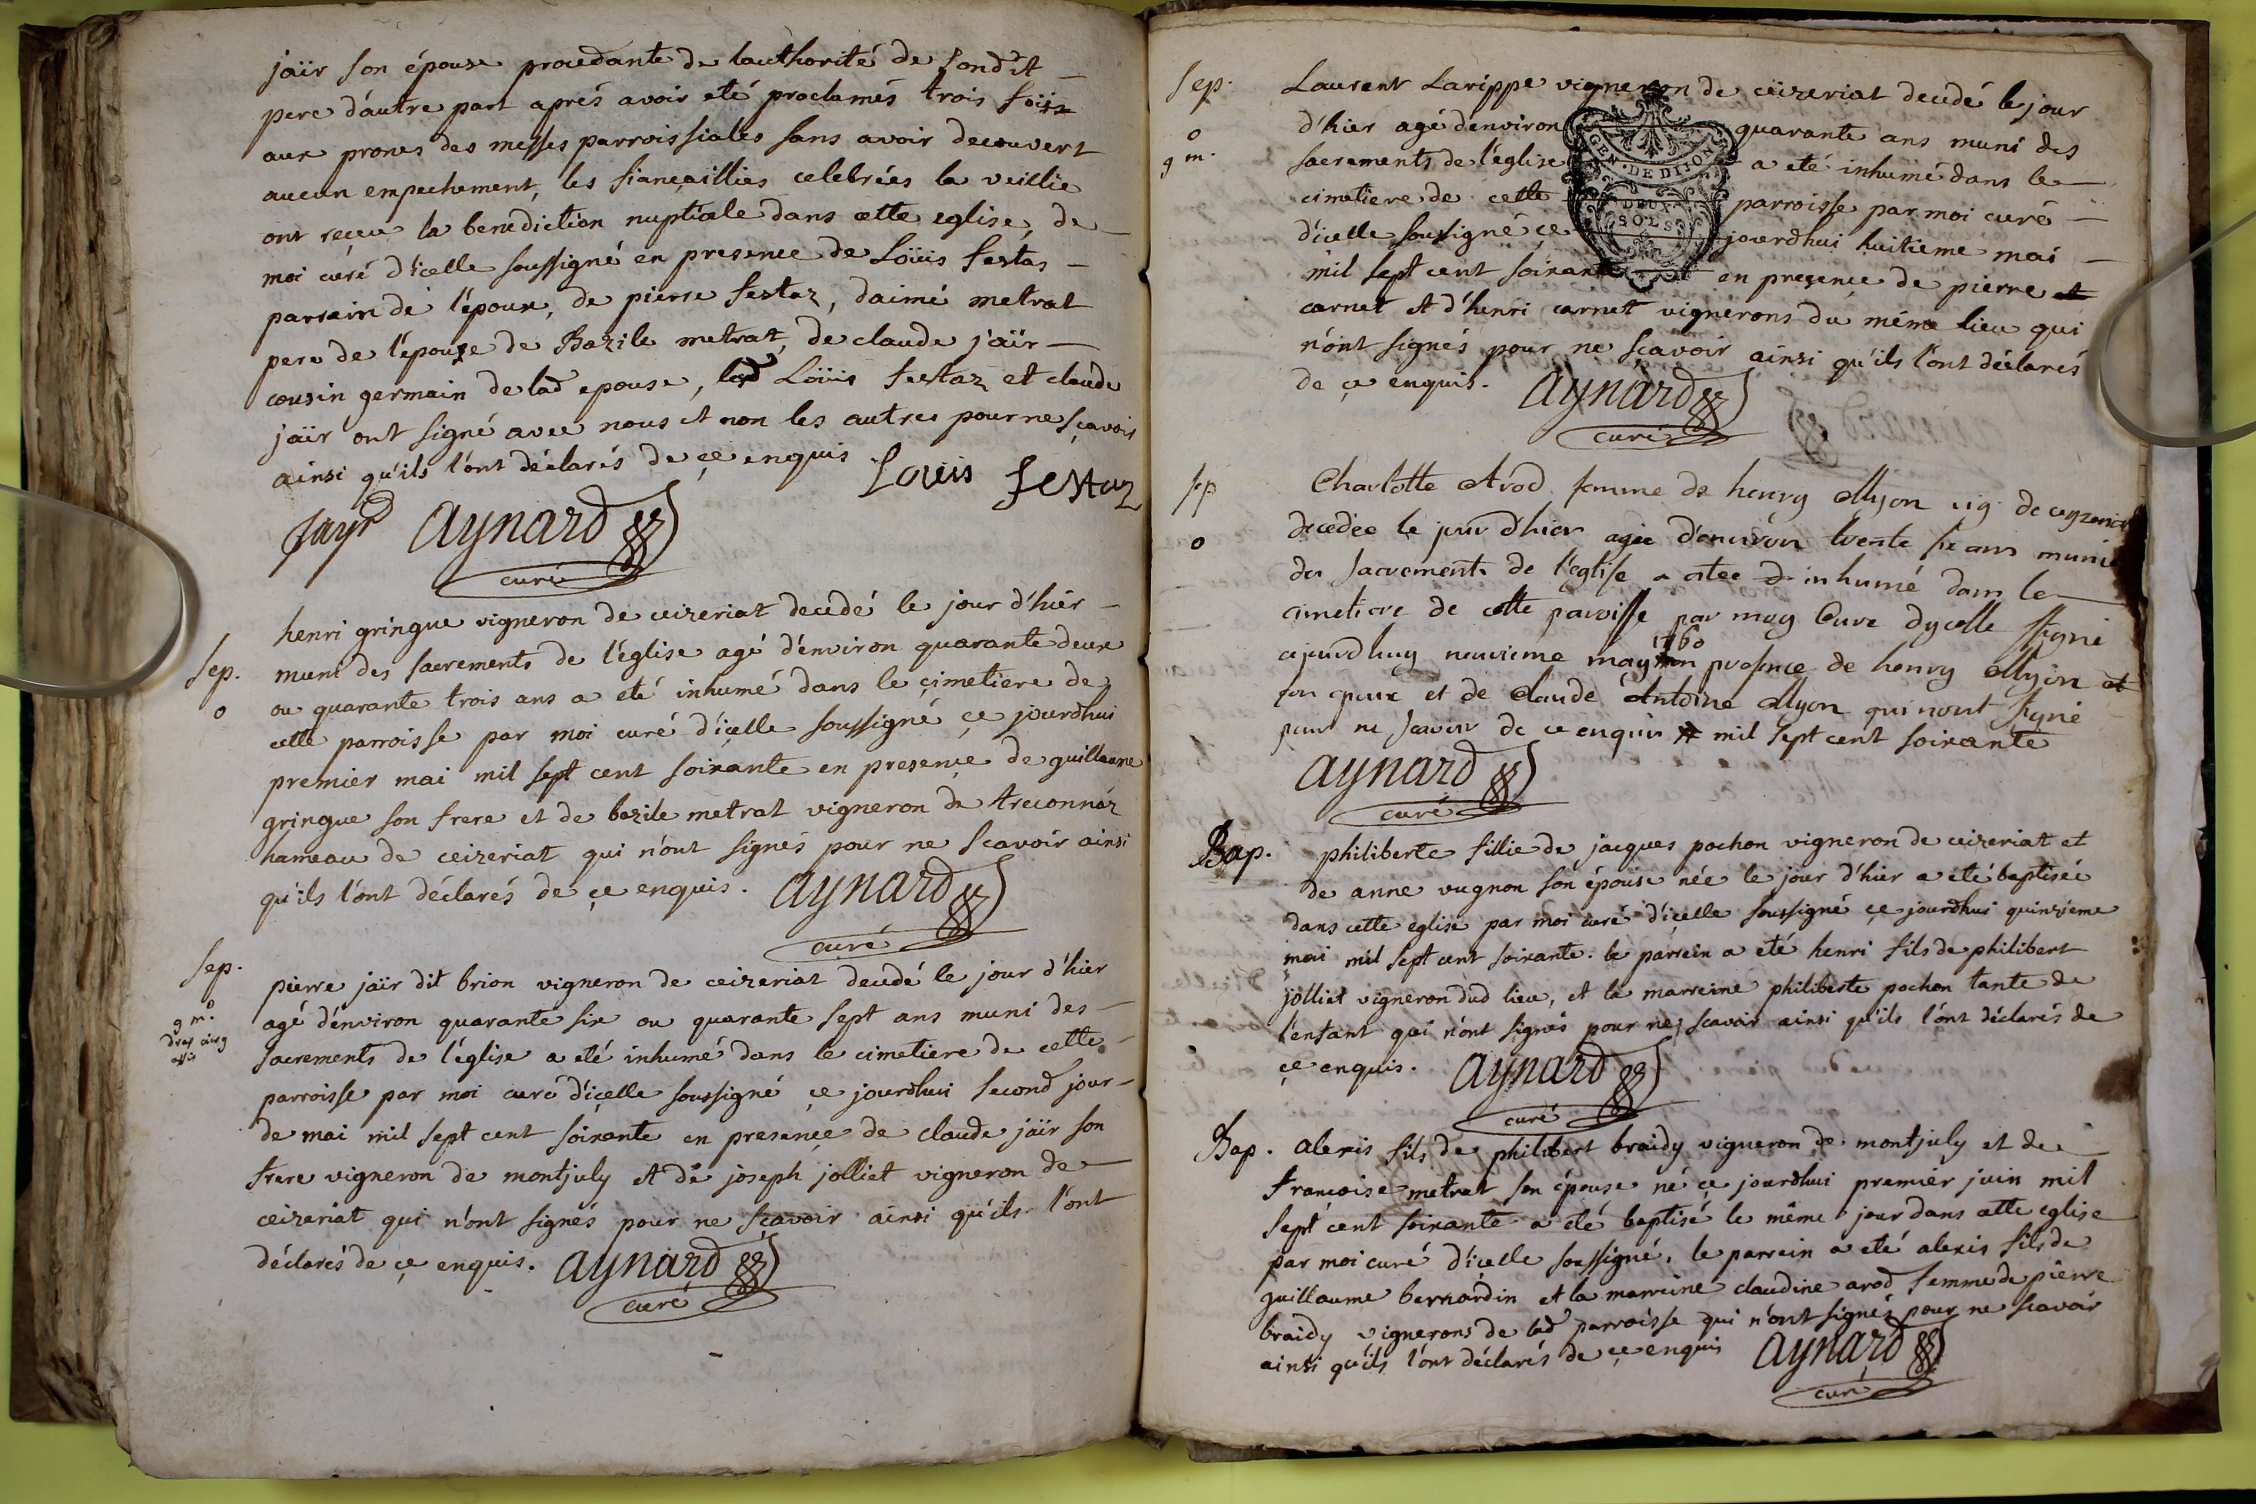 jaïr son épouse procedante de lauthorité de sondit
pere d'autre part aprés avoir eté proclamés trois foiis
aux prones des messes parroissiales sans avoir decouvert
aucun empechement, les fiançaillies celebrées la veillie
ont reçeu la benediction nuptiale dans cette eglise, de
moi curé d'icelle soussigné en presence de Löüis festas
parrain de l'époux, de pierre festaz, daimé metrat
pere de l'épouse de Bazile metrat, de claude jaïr
cousin germain de lad epouse, led Löüis festaz et claude
jaïr ont signé avec nous et non les autres pour ne sçavoir
ainsi qu'ils l'ont déclarés de çe enquis Louis festaz
Jayr Aynard
curé
Sep.
o
henri gringue vigneron de ceizeriat decédé le jour d'hiér
muni des sacrements de l'église agé d'énviron quarante deux
ou quarante trois ans a eté inhumé dans le çimetiere de
cette parroisse par moi curé d'içelle soussigné çe jourdhui
premiér mai mil sept cent soixante en presençe de guillaume
gringue son frere et de bazile metrat vigneron de treconnàz
hameau de ceizeriat qui n'ont signés pour ne scavoir ainsi
qu'ils l'ont déclarés de çe enquis. Aynard
curé
Sep.
o
g m.
pierre jaïr dit brion vigneron de ceizeriat decedé le jour d'hiér
agé d'énviron quarante six ou quarante sept ans muni des
sacrements de l'église a eté inhumé dans le cimetiere de cette
parroisse par moi curé d'içelle soussigné çe jourdhui second jour
de mai mil sept cent soixante en presençe de claude jaïr son
frere vigneron de montjuly et de joseph jolliet vigneron de
ceizeriat qui n'ont signés pour ne sçavoir ainsi qu'ils l'ont
déclarés de çe enquis. Aynard
curé
Sep.
o
g m.
Laurent Larippe vigneron de ceizeriat decedé le jour
d'hier agé d'environ quarante ans muni des
sacrements de l'église a eté inhumé dans le
cimetiere de cette parroisse par moi curé
d'icelle soussigné çe jourdhui huitieme mai
mil sept cent soixante en presençe de pierre et
carnet et d'henri carnet vignerons du méme lieu qui
n'ont signés pour ne sçavoir ainsi qu'ils l'ont déclarés
de çe enquis. Aynard
curé
GEN. DE DIJON
DEUX
SOLS
sep
o
Charlotte Arod femme de henry Myon vig de ceyzeriat
decedée le jour d'hier agée d'environ trente six ans munie
des sacrements de l'eglise a etée inhumé dans le
cimetiere de cette paroisse par moy Curé dycelle ssigné
1760
ajourdhuy neuvieme may en presence de henry Myon et
son epoux et de Claude Antoine Myon qui nont signé
pour ne scavoir de ce enquis mil sept cent soixante
Aynard
curé
Bap.
philiberte fillie de jacques pochon vigneron de ceizeriat et
de anne vugnon son épouse née le jour d'hier a eté baptisée
dans cette eglise par moi curé d'içelle soussigné çe jourdhui quinzieme
mai mil sept cent soixante. le parrein a eté henri fils de philibert
jolliet vigneron dud lieu, et la marreine philiberte pochon tante de
l'enfant qui n'ont signés pour ne scavoir ainsi qu'ils l'ont déclarés de
çe enquis. Aynard
curé
Bap.
alexis fils de philibert braidy vigneron de montjuly et de
francoise metrat son épouse né çe jourdhui premiér juin mil
sept cent soixante a eté baptisé le même jour dans cette eglise
par moi curé d'icelle soussigné, le parrein a eté alexis fils de
guillaume bernardin et la marreine claudine arod femme de pierre
braidy vignerons de lad parroisse qui n'ont signés pour ne scavoir
ainsi qu'ils l'ont déclarés de çe enquis Aynard
curé